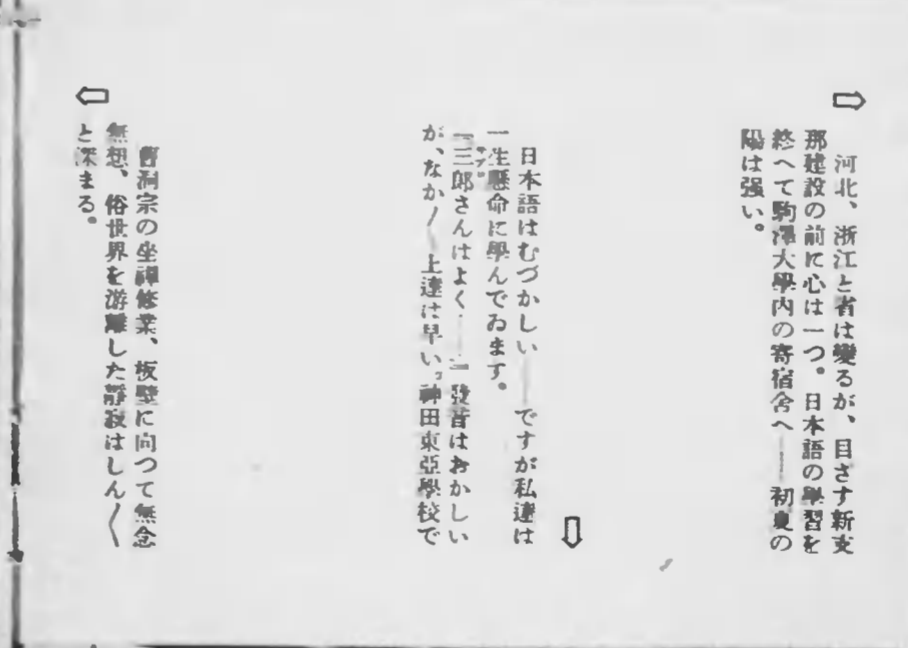 ⇨
河北、浙江と省は變るが、目さす新支
那建設の前に心は一つ。日本語の學習を
終へて駒澤大學内の寄宿舍へ――初夏の
陽は强い。
⇩
日本語はむづかしい――ですが私達は
一生懸命に學んでゐます。
『三郎さんはよく……』發音はおかしい
が、なか〳〵上達は早い。神田東亞學校で
⇦
曹洞宗の坐禪修業、板壁に向つて無念
無想、俗世界を游離した靜寂はしん〳〵
と深まる。